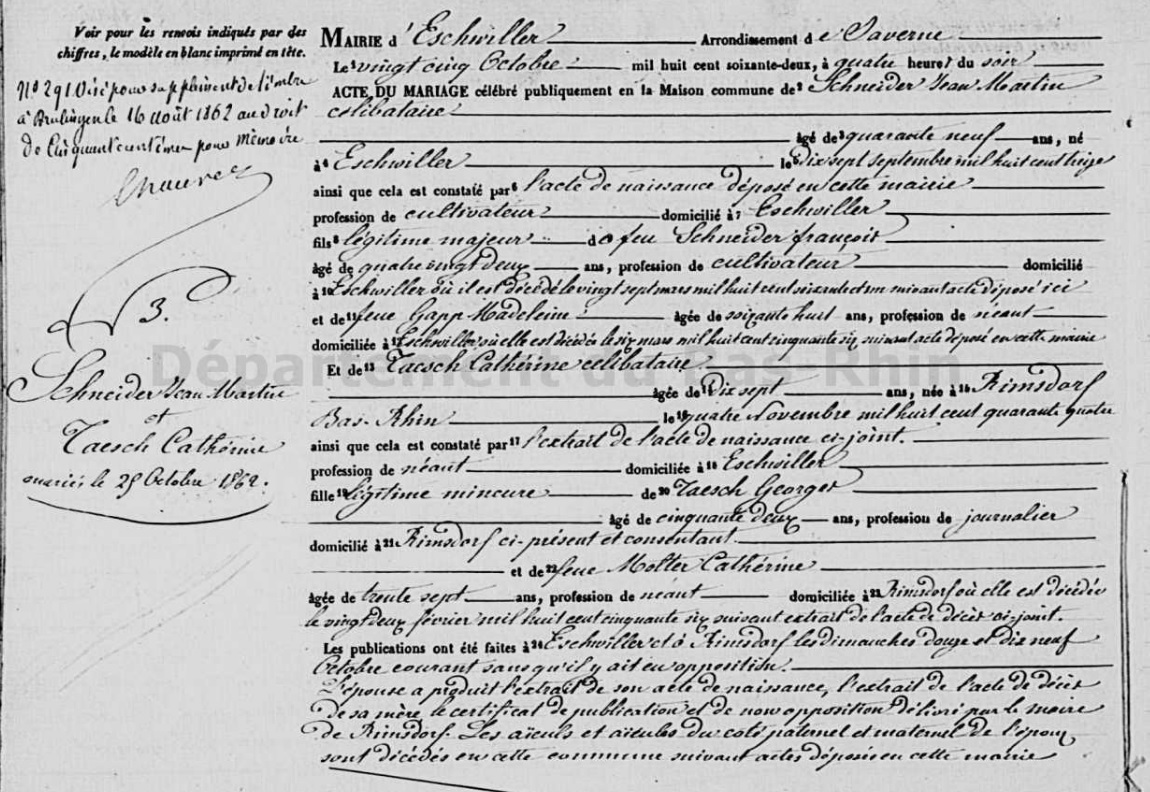 Voir pour les renvois indiqués par des
chiffres, le modèle en blanc imprimé en tête.
N° 291 Visé pour supplément de timbre
à Drulingen le 16 août 1862 au droit
de cinquante centimes pour mémoire
3.
Schneider Jean Martin
et
Taesch Cathérine
mariés le 25 Octobre 1862.
MAIRIE d'Eschwiller Arrondissement de Saverne
Le 1 vingt cinq Octobre mil huit cent soixante-deux, à quatre heures du soir
ACTE DU MARIAGE célébré publiquement en la Maison commune de 2 Schneider Jean Martin
célibataire
âgé de 3 quarante neuf ans, né
à 4 Eschwiller le 5 dix sept septembre mil huit cent treize
ainsi que cela est constaté par 6 l'acte de naissance déposé en cette mairie
profession de cultivateur domicilié à 7 Eschwiller
fils 8 légitime majeur de 9 feu Schneider françois
âgé de quatre vingt deux ans, profession de cultivateur domicilié
à 10 Eschwiller où il est décédé le vingt sept mars mil huit cent soixante et un suivant acte déposé ici
et de 11 feue Gapp Madeleine âgée de soixante huit ans, profession de néant
domiciliée à 12 Eschwiller où elle est décédée le six mars mil huit cent cinquante six suivant acte déposé en cette mairie
Et de 13 Taesch Cathérine célibataire
âgée de 14 dix sept ans, née à 15 Rimsdorf
Bas-Rhin le 16 quatre Novembre mil huit cent quarante quatre
ainsi que cela est constaté par 17 l'extrait de l'acte de naissance ci-joint.
profession de néant domiciliée à 18 Eschwiller
fille 19 légitime mineure de 20 Taesch Georges
âgé de cinquante deux ans, profession de journalier
domicilié à 21 Rimsdorf ci-présent et consentant
et de 22 feue Molter Cathérine
âgée de trente sept ans, profession de néant domiciliée à 23 Rimsdorf où elle est décédée
le vingt deux février mil huit cent cinquante six suivant extrait de l'acte de décès ci-joint.
Les publications ont été faites à 24 Eschwiller et à Rimsdorf les dimanches douze et dix neuf
Octobre courant sans qu'il y ait eu opposition.
L'épouse a produit l'extrait de son acte de naissance, l'extrait de l'acte de décès
de sa mère, le certificat de publication et de non opposition délivré par le maire
de Rimsdorf. Les aïeuls et aïeules du coté paternel et maternel de l'époux
sont décédés en cette commune suivant actes déposés en cette mairie
Département du Bas-Rhin